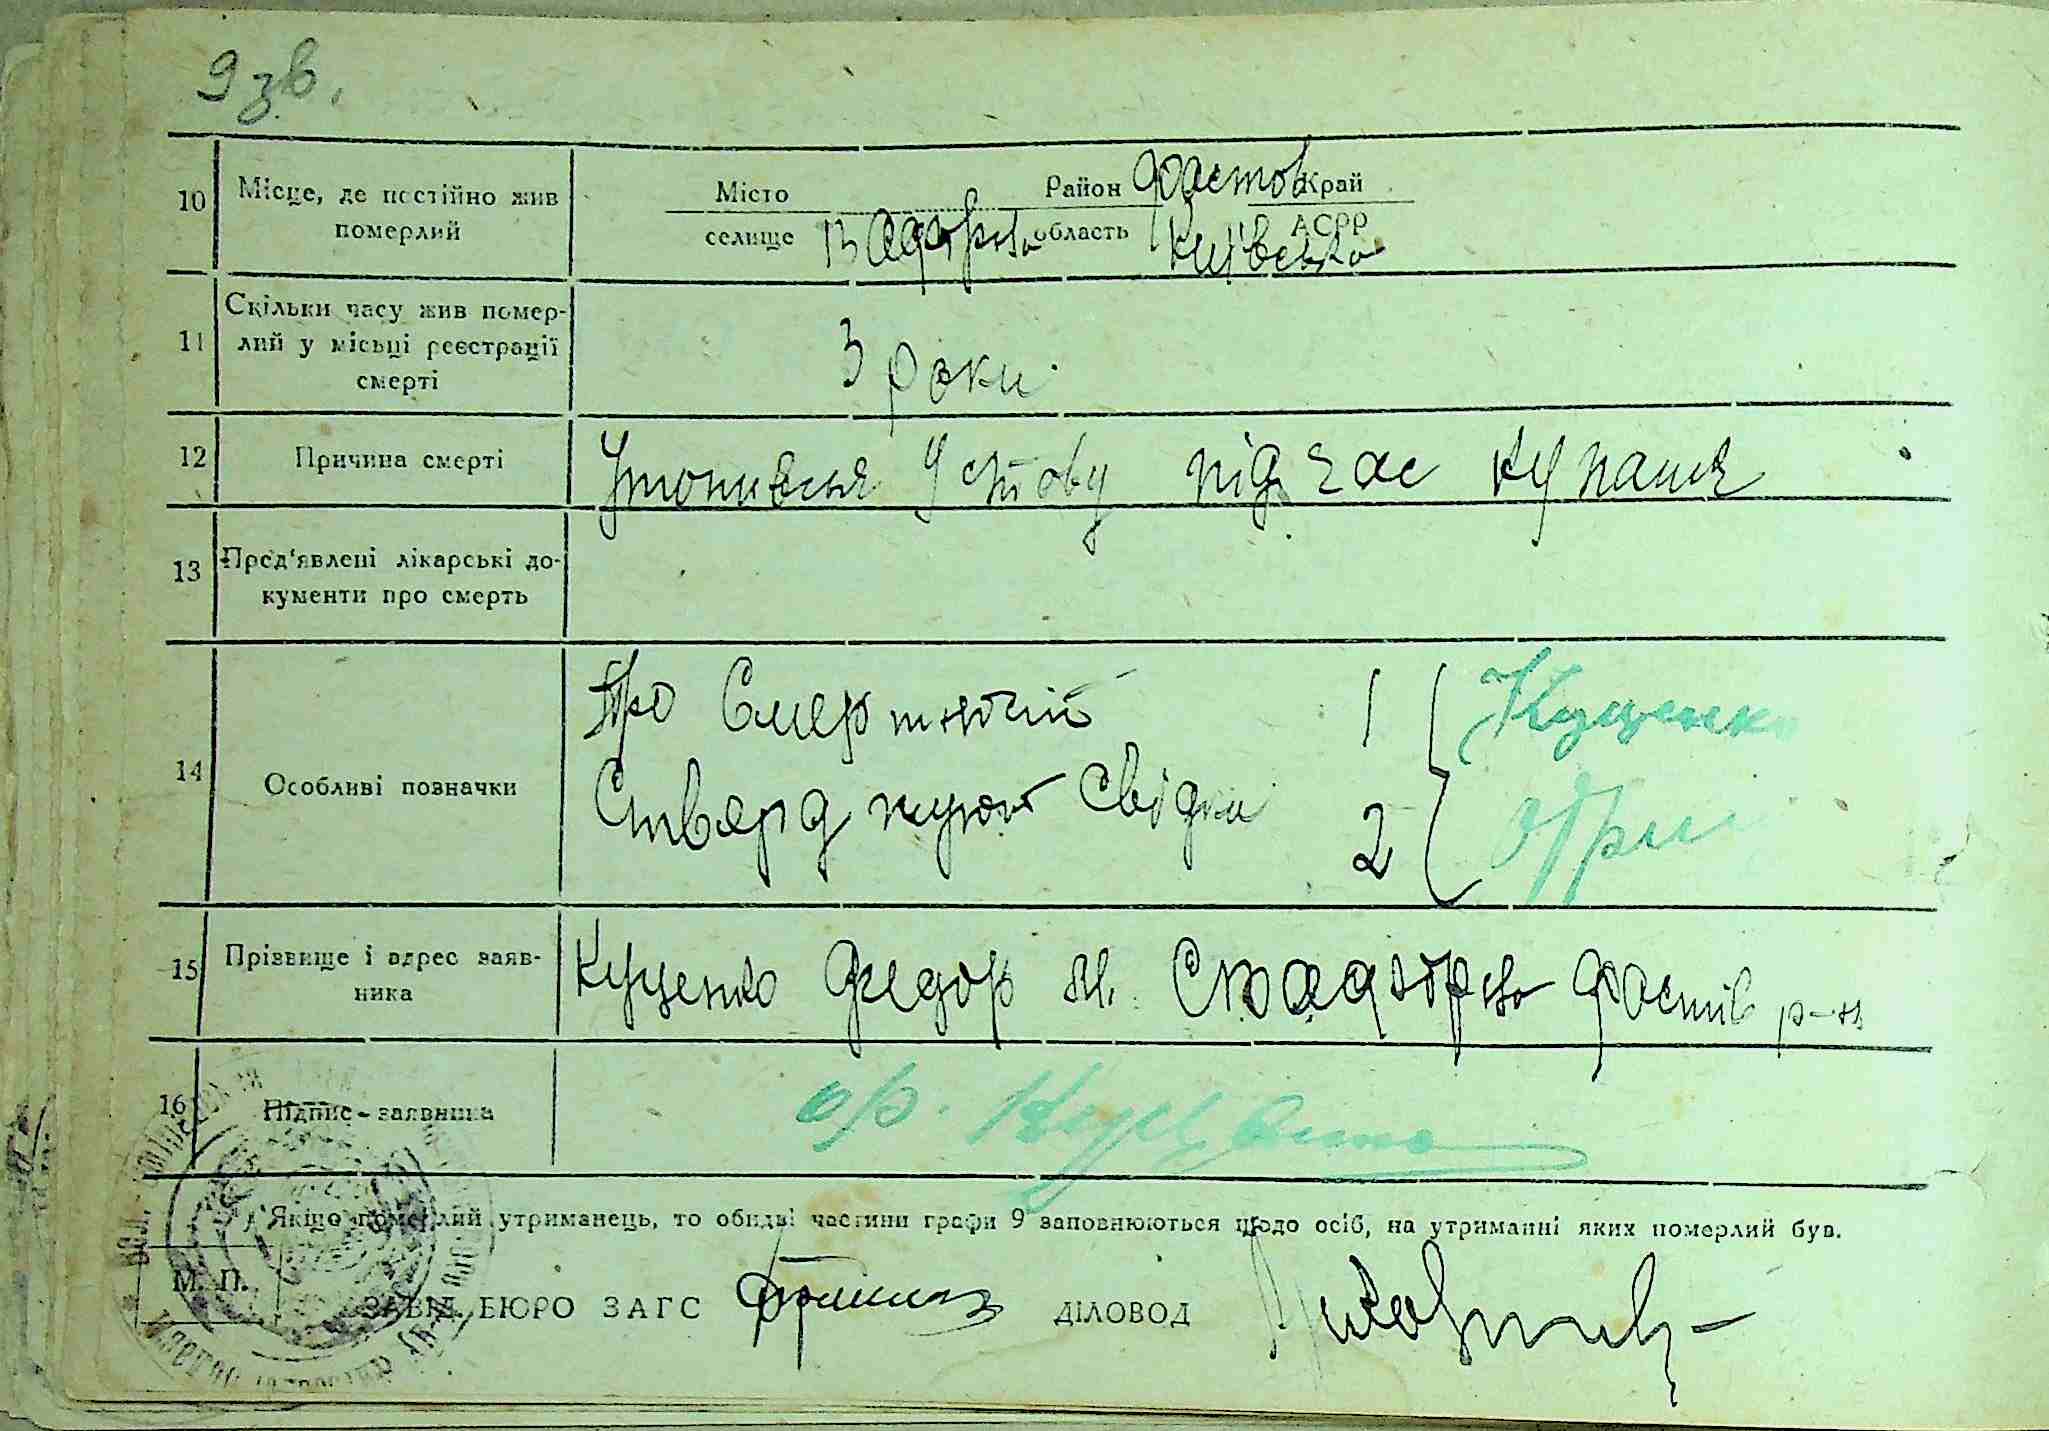 9 зв.
10 Місце, де постійно жив померлий
Місто Район Фастов Край
селище область Київська АСРР
11 Скільки часу жив помер-
лий у місьці реєстрації
смерті
3 роки
12 Причина смерті
Утопився у ставу під час купання
13 Пред'явлені лікарські до-
кументи про смерть
14 Особливі позначки
Про Смерть 1 Куценко
Стверджують свідки 2
15 Прізвище і адрес заяв-
ника
Куценко Федор Фастів р-н
16 Підпис заявника
Куценко
Якщо померлий утриманець, то обидві частини графи 9 заповнюються щодо осіб, на утриманні яких померлий був.
М. П.
ЗАВІД. БЮРО ЗАГС ДІЛОВОД